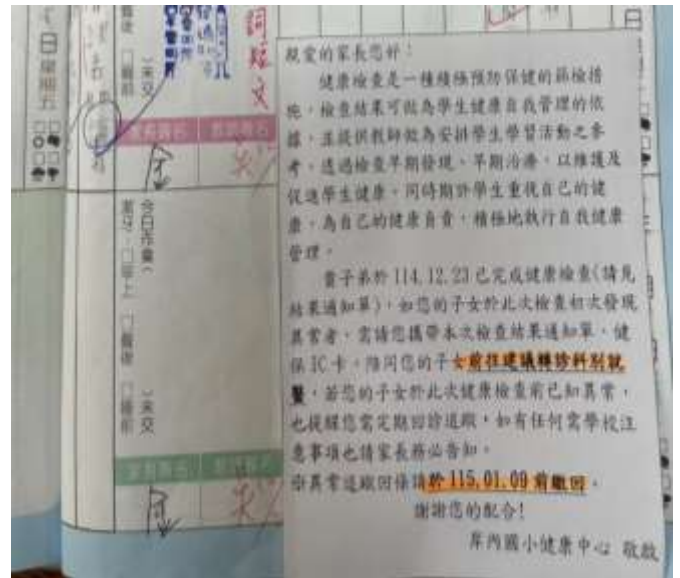 日 星期五
詞短文
家長簽名 教師簽名
今日作業(
)未交
潔牙:□早上 □餐後 □睡前
家長簽名 教師簽名
親愛的家長您好!
健康檢查是一種積極預防保健的篩檢措
施,檢查結果可做為學生健康自我管理的依
據,並提供教師做為安排學生學習活動之參
考。透過檢查早期發現、早期治療,以維護及
促進學生健康,同時期許學生重視自己的健
康,為自己的健康自責,積極地執行自我健康
管理。
貴子弟於 114.12.23 已完成健康檢查(請見
結果通知單),如您的子女於此次檢查初次發現
異常者,需請您攜帶本次檢查結果通知單、健
保 IC 卡,陪同您的子女前往建議轉診科別就
醫,若您的子女於此次健康檢查前已知異常,
也提醒您需定期回診追蹤,如有任何需學校注
意事項也請家長務必告知。
※異常追蹤回條請於 115.01.09 前繳回。
謝謝您的配合!
岸內國小健康中心 敬啟